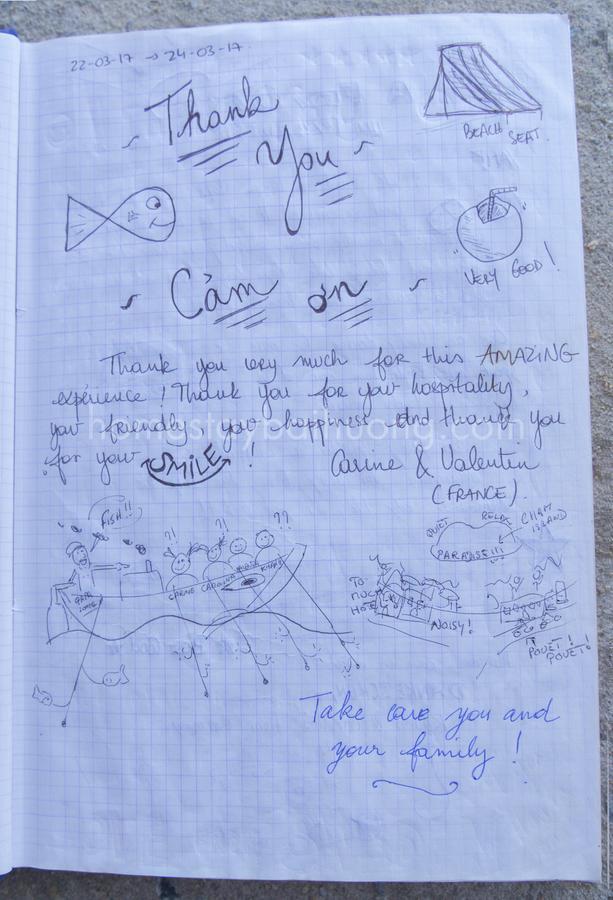 22-03-17 → 24-03-17
Thank
You
BEACH SEAT.
VERY GOOD!
Cảm ơn
Thank you very much for this AMAZING
expérience ! Thank you for your hospitality,
your friendly, your happiness and thank you
for your SMILE !
Carine & Valentin
(FRANCE).
homestaybaihuong.com
FISH!!
?!
??
?!
??
CARINE CAROLINA
QUIET RELAX CHAM
ISLAND
PARADISE!!!
TO
MUCH
HOTEL
NOISY!
POUET!
POUET!
Take care you and
your family !